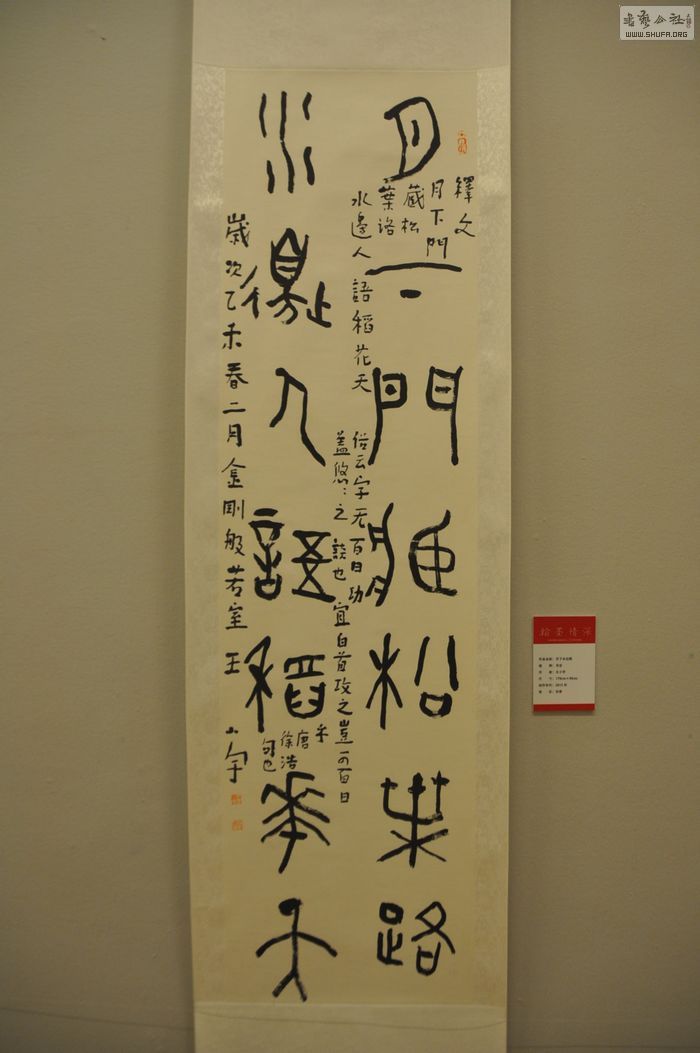 月下門藏松葉路
水邊人語稻華天
釋文
月下門
藏松
葉路
水邊人語稻花天
俗云字无百日功
蓋悠〻之談也宜白首攻之豈可百日
乎
唐
徐浩
句也
歲次乙未春二月金剛般若室王小宇
翰墨情深
書藝公社
WWW.SHUFA.ORG